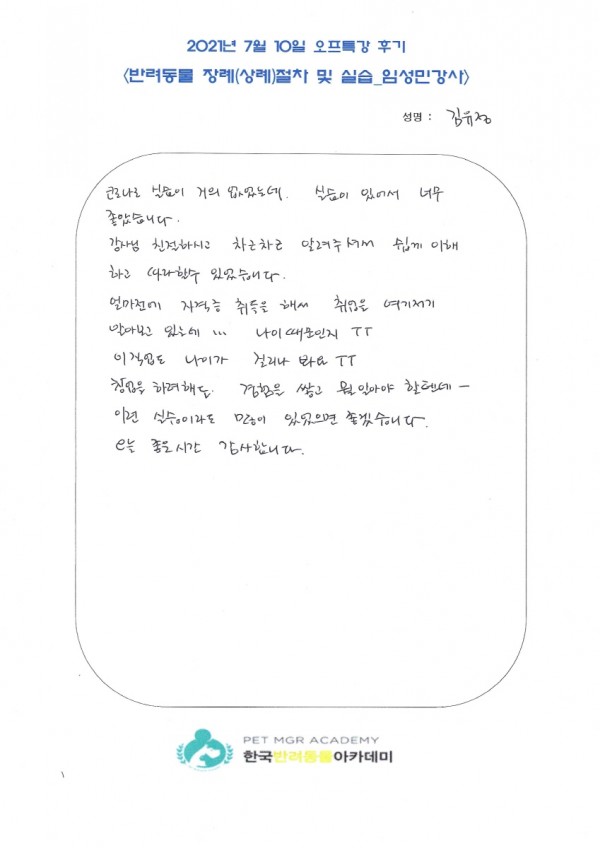 2021년 7월 10일 오프특강 후기
<반려동물 장례(상례)절차 및 실습_임성민강사>
성명 : 김유정
코로나로 실습이 거의 없었는데. 실습이 있어서 너무
좋았습니다.
강사님 친절하시고 차근차근 알려주셔서 쉽게 이해
하고 따라할수 있었습니다.
얼마전에 자격증 취득을 해서 취업을 여기저기
알아보고 있는데 ... 나이때문인지 ㅠㅠ
이직업도 나이가 걸리나 봐요 ㅠㅠ
창업을 하려해도. 경험을 쌓고 뭘 알아야 할텐데 -
이런 실습이라도 많이 있었으면 좋겠습니다.
오늘 좋은시간 감사합니다.
PET MGR ACADEMY
한국반려동물아카데미